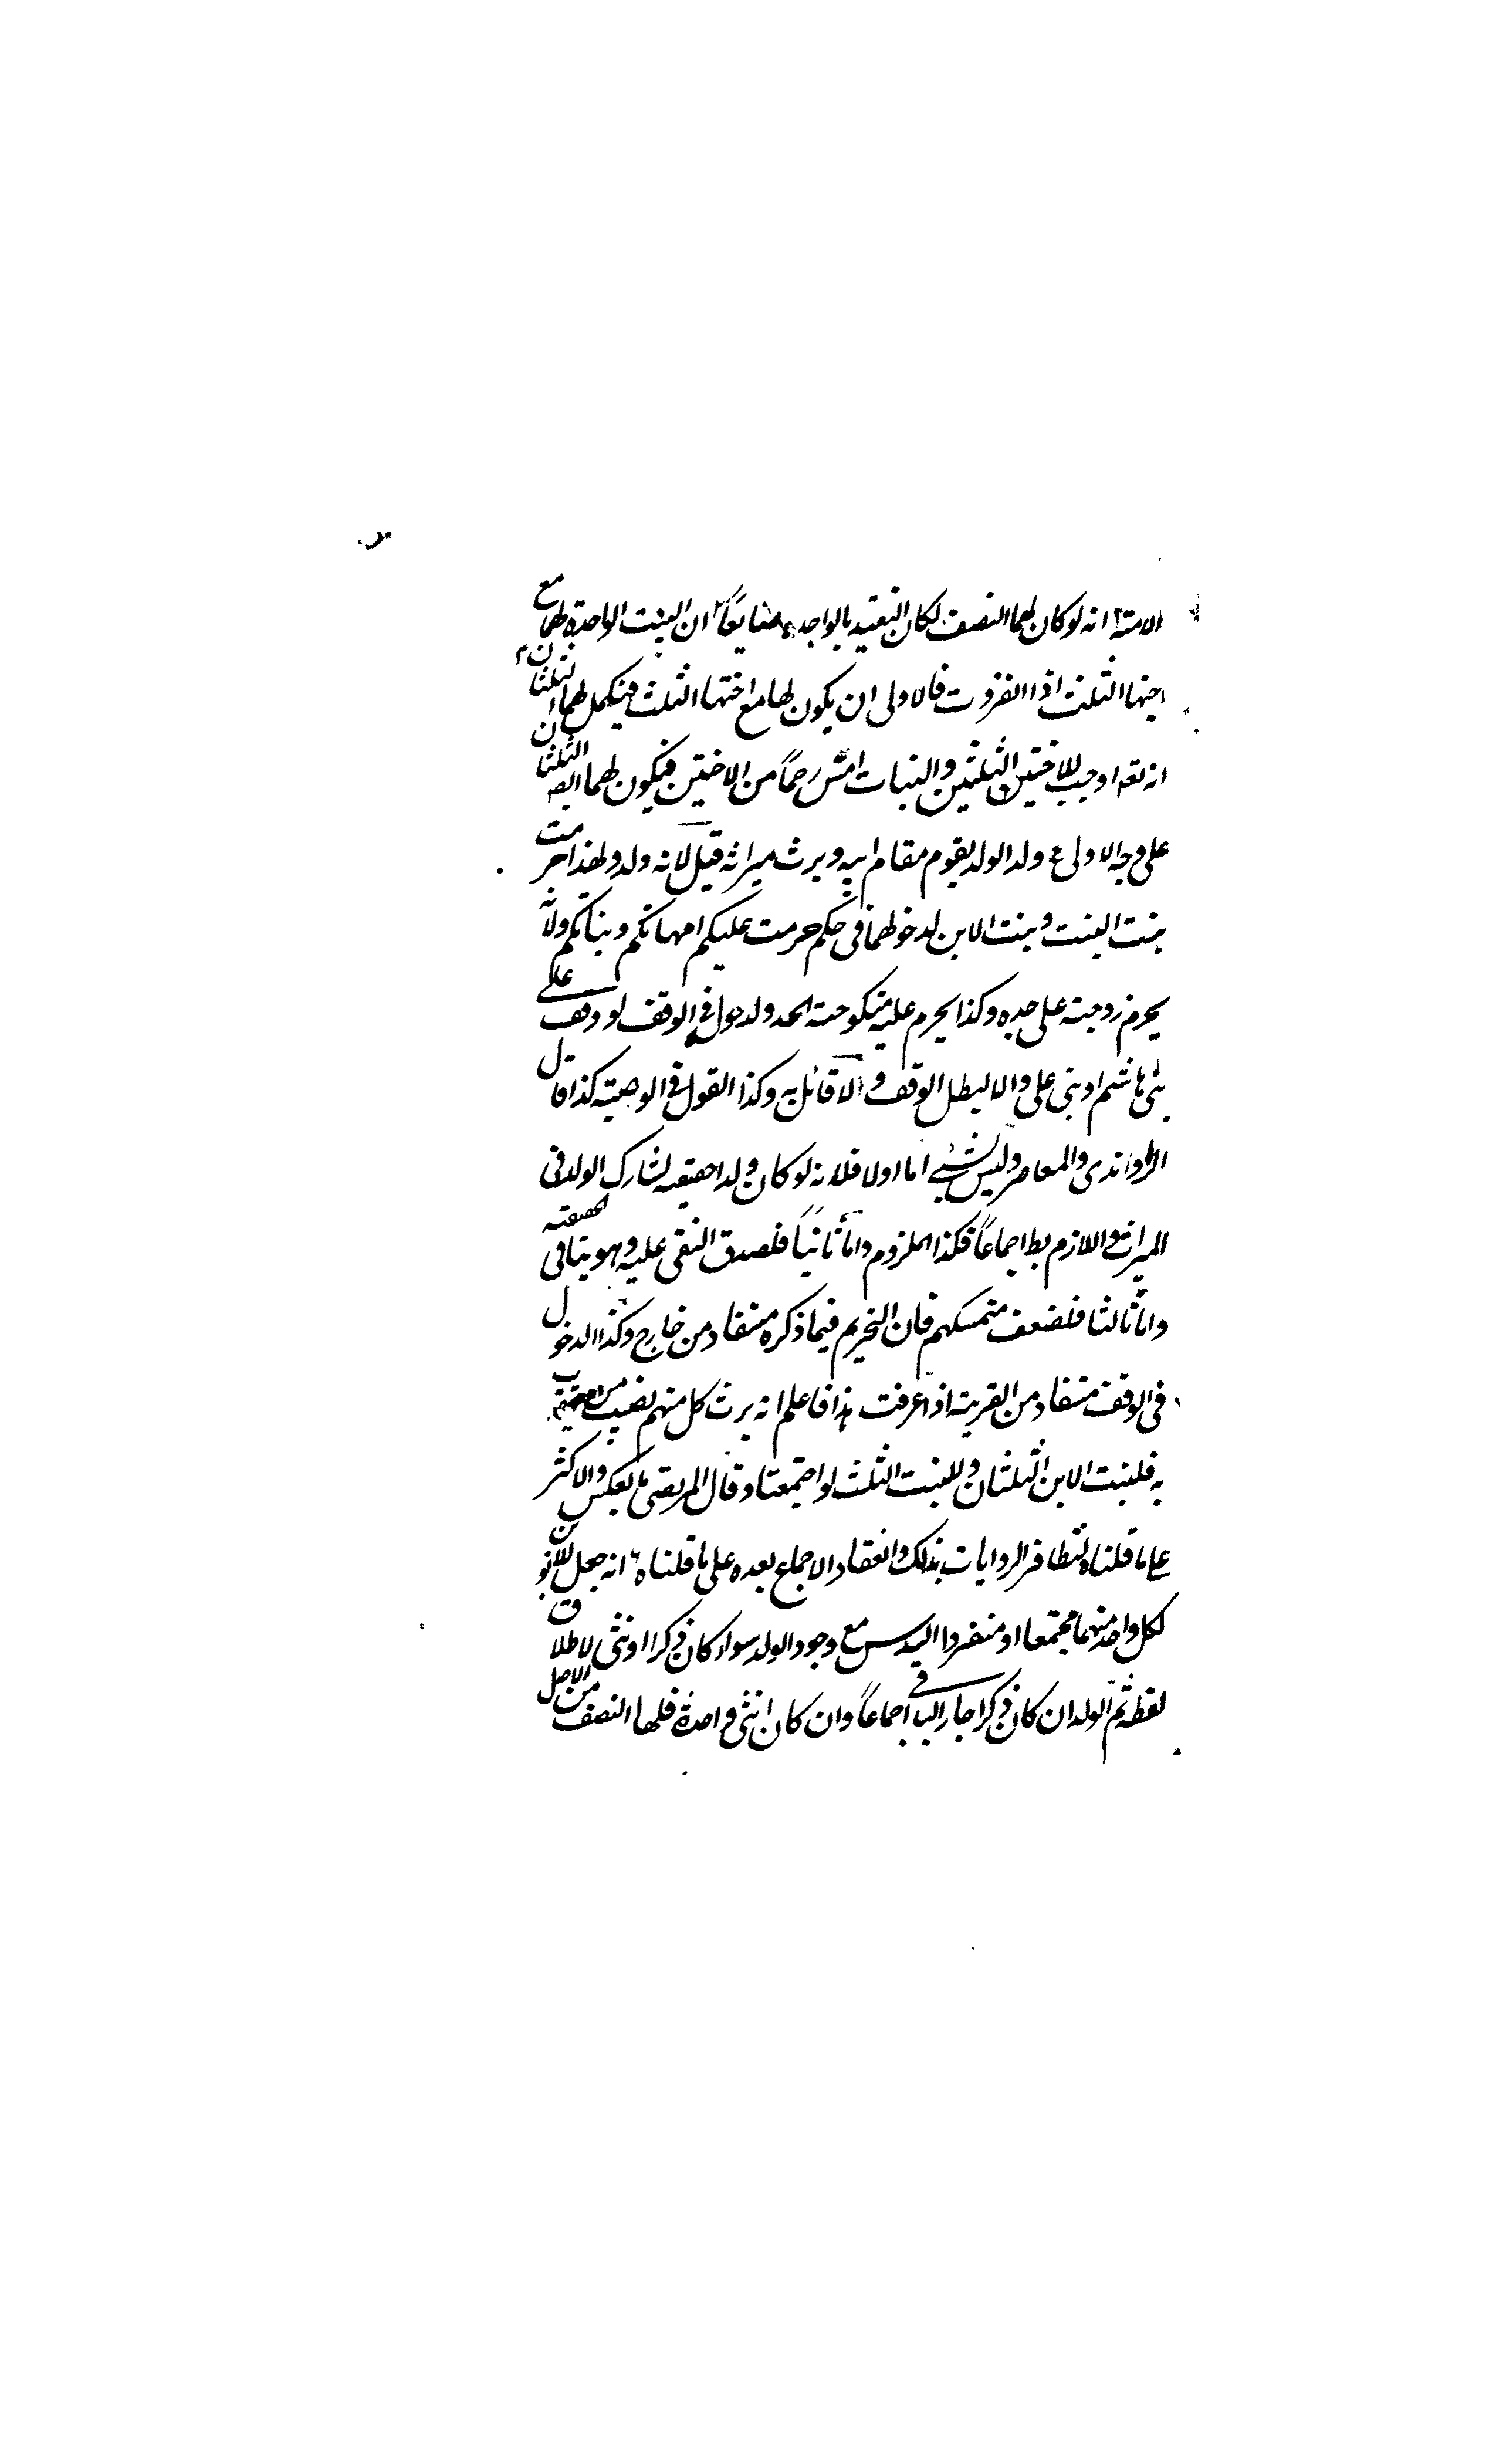 الامة ٢ انه لو كان لهما النصف لكان التقييد بالواحدة ضايعا ٣ ان البنت الواحدة لها مع
اخيها الثلث اذا انفردت فالاولى ان يكون لها مع اختها الثلث فيكمل لهما الثلثان ٤
انه تعه اوجب للاختين الثلثين والبنات امس رحماً من الاختين فيكون لهما الثلثان
على وجه الاولى ع ولد الولد يقوم مقام ابيه ويرث ميراثه قيل لانه ولد ولهذا حرمت
بنت البنت وبنت الابن لدخولهما في حكم حرمت عليكم امهاتكم وبناتكم ولانه
يحرم زوجته على جده وكذا يحرم عليه منكوحة الجد ولدخوله في الوقف لو وقف على
بني هاشم او بني علي والا لبطل الوقف ولا قائل به وكذا القول في الوصية كذا قال
الراوندي والمعاصر وليس بشيء اما اولا فلانه لو كان ولدا حقيقة لشارك الولد في
الميراث واللازم بط اجماعاً فكذا الملزوم واما ثانياً فلصدق النفي عليه وهو ينافي الحقيقة
واما ثالثا فلضعف متمسكهم فان التحريم فيما ذكره مستفاد من خارج وكذا الدخول
في الوقف مستفاد من القرينة اذا عرفت هذا فاعلم انه يرث كل منهم نصيب من يتقرب
به فلبنت الابن الثلثان وللبنت الثلث لو اجتمعتا وقال المرتضى بالعكس والاكثر
على ما قلناه لتظافر الروايات بذلك وانعقاد الاجماع بعده على ما قلناه ٦ انه جعل للابوين
لكل واحد منهما مجتمعا او منفردا السدس مع وجود الولد سواء كان ذكرا او انثى لاطلاق
لفظه ثم الولد ان كان ذكرا حاز الباقي اجماعاً وان كان انثى واحدة فلها النصف من الاصل